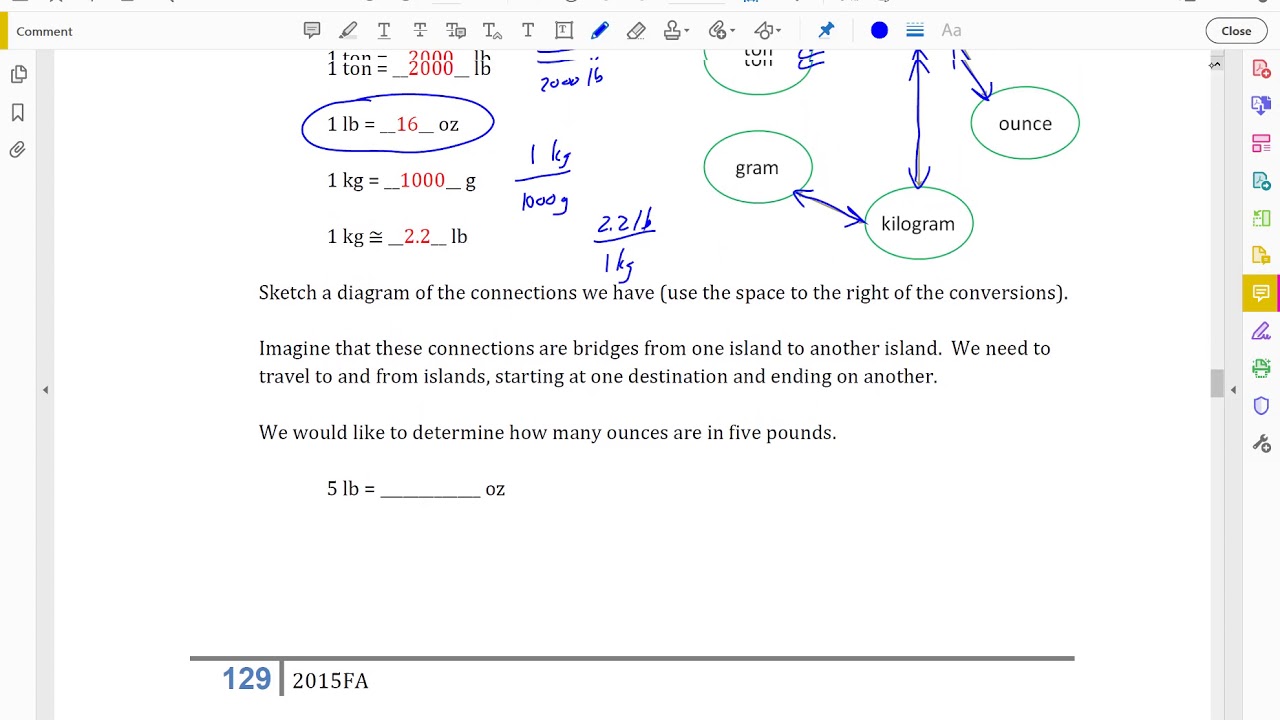 Comment
Close
Aa
1 ton = __2000__ lb
1 ton = __2000__ lb
2000 lb
ton
ton
1 lb = __16__ oz
ounce
1 kg
1000g
gram
1 kg = __1000__ g
2.2 lb
1 kg
kilogram
1 kg ≅ __2.2__ lb
Sketch a diagram of the connections we have (use the space to the right of the conversions).
Imagine that these connections are bridges from one island to another island. We need to
travel to and from islands, starting at one destination and ending on another.
We would like to determine how many ounces are in five pounds.
5 lb = ____________ oz
129 2015FA